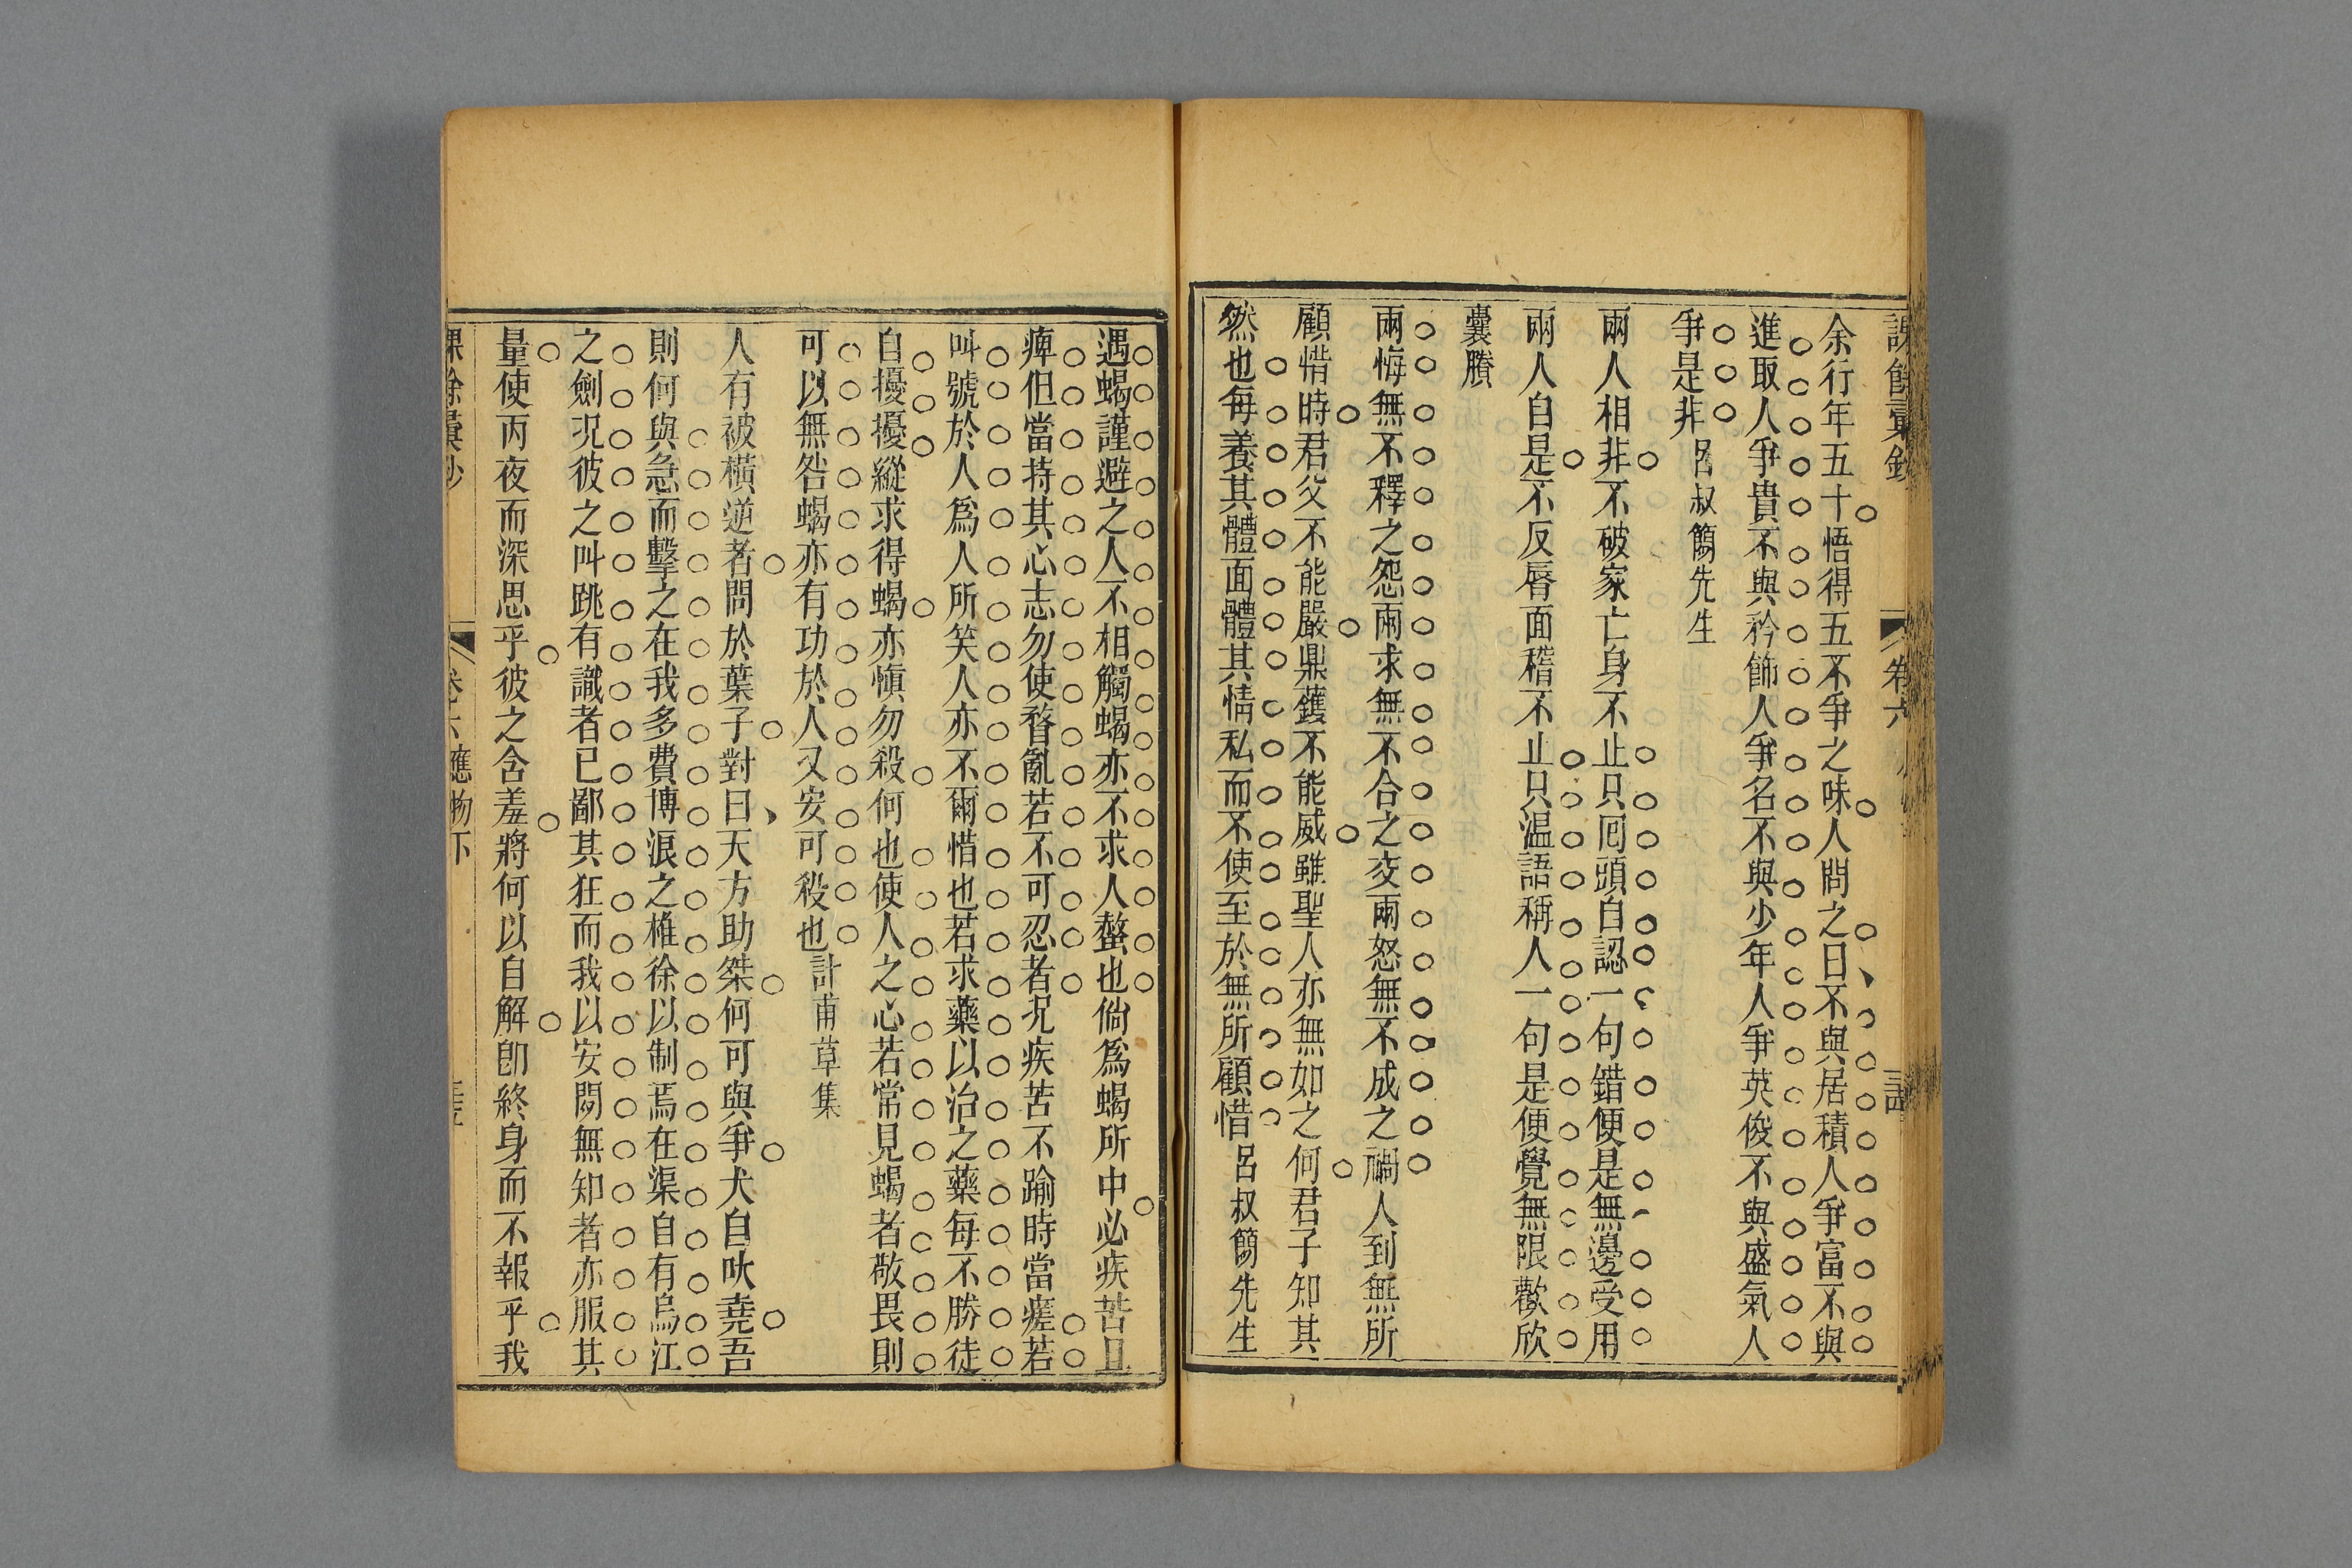 課餘彙鈔 卷六
余行年五十悟得五不爭之味人問之曰不與居積人爭富不與
進取人爭貴不與矜飾人爭名不與少年人爭英俊不與盛氣人
爭是非呂叔簡先生
兩人相非不破家亡身不止只囘頭自認一句錯便是無邊受用
兩人自是不反唇面稽不止只温語稱人一句是便覺無限歡欣
囊賸
兩悔無不釋之怨兩求無不合之交兩怒無不成之禍人到無所
顧惜時君父不能嚴鼎鑊不能威雖聖人亦無如之何君子知其
然也每養其體面體其情私而不使至於無所顧惜呂叔簡先生
遇蝎謹避之人不相觸蝎亦不求人螫也倘爲蝎所中必疾苦且
痺但當持其心志勿使瞀亂若不可忍者况疾苦不踰時當瘥若
叫號於人爲人所笑人亦不爾惜也若求藥以治之藥每不勝徒
自擾擾縱求得蝎亦愼勿殺何也使人之心若常見蝎者敬畏則
可以無咎蝎亦有功於人又安可殺也計甫草集
人有被橫逆者問於葉子對曰天方助桀何可與爭犬自吠堯吾
則何與急而擊之在我多費博浪之椎徐以制焉在渠自有烏江
之劍况彼之叫跳有識者已鄙其狂而我以安閑無知者亦服其
量使丙夜而深思乎彼之含羞將何以自解卽終身而不報乎我
課餘彙鈔 卷六應物下